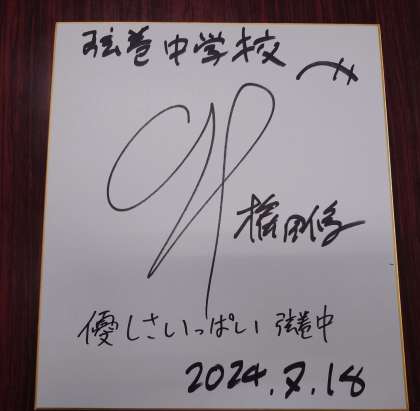 弦巻中学校へ
権田修
優しさいっぱい 弦巻中
2024.7.18